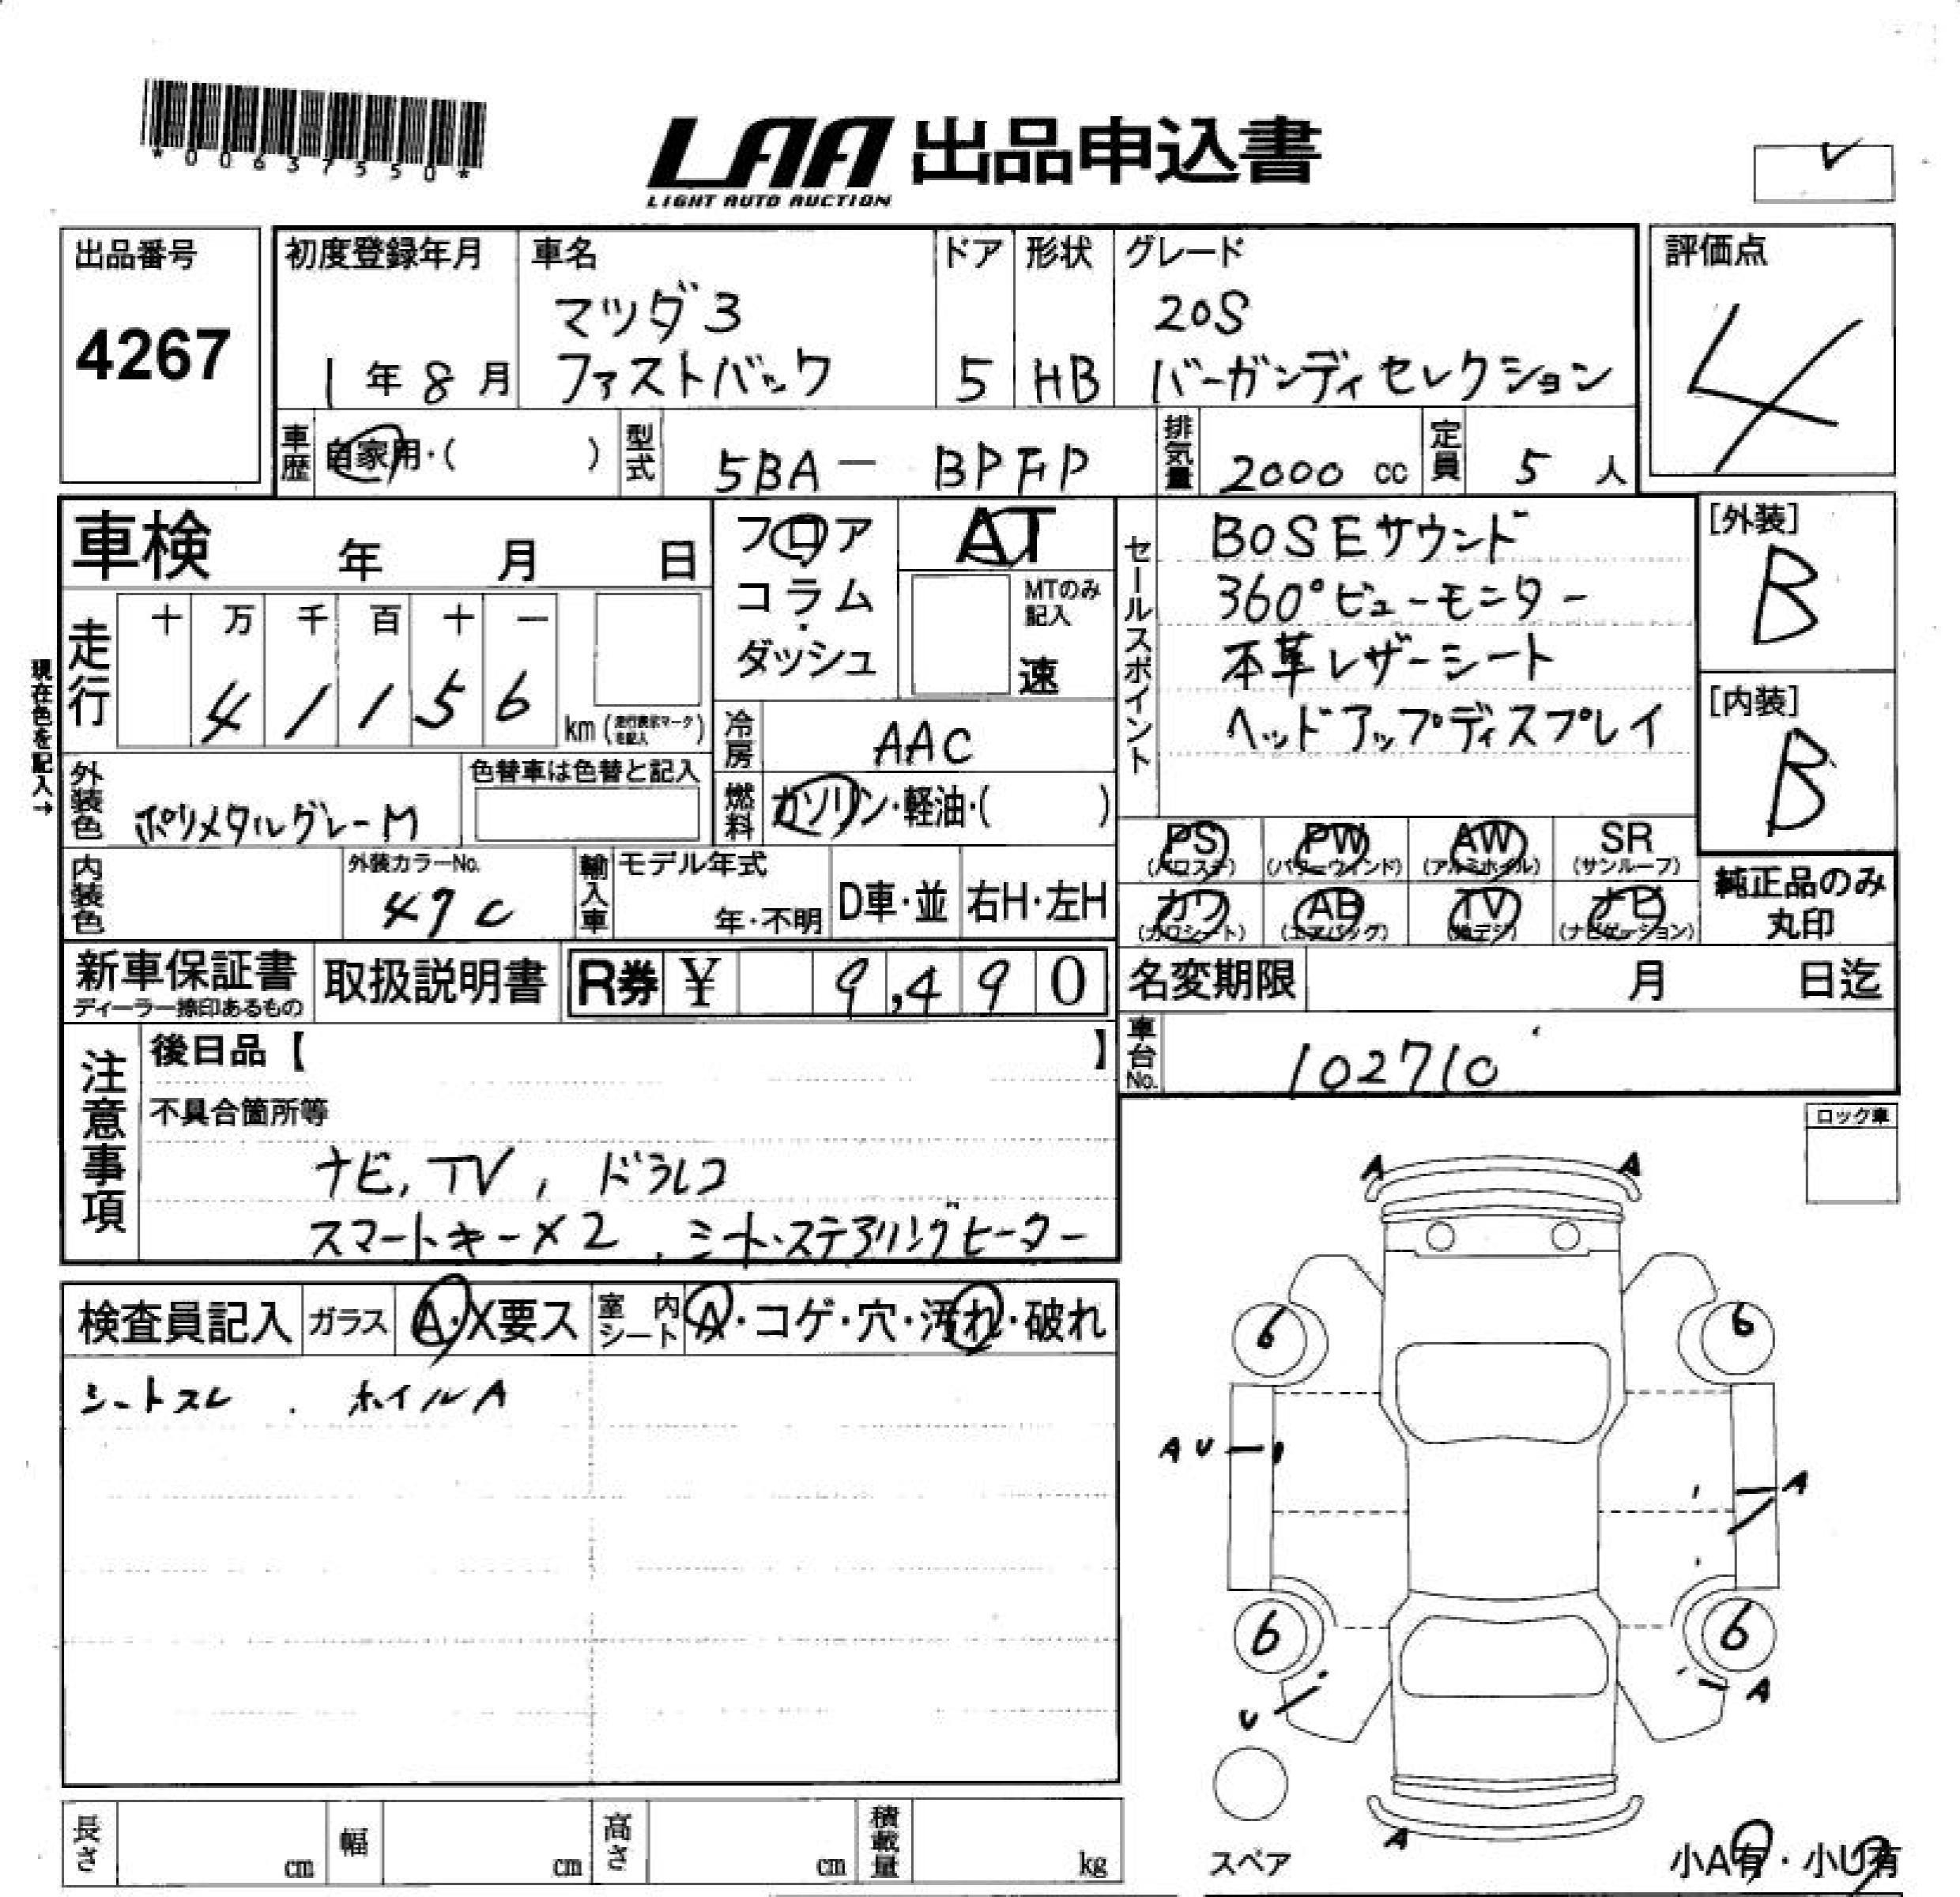 *00637550*
LAA 出品申込書
LIGHT AUTO AUCTION
出品番号
4267
初度登録年月
1年8月
車名
マツダ3
ファストバック
ドア
5
形状
HB
グレード
20S
バーガンディセレクション
評価点
4
車歴
自家用・( )
型式
5BA － BPFP
排気量
2000 cc
定員
5 人
車検 年 月 日
フロア
コラム
・
ダッシュ
AT
MTのみ
記入
速
セールスポイント
BOSEサウンド
360°ビューモニター
本革レザーシート
ヘッドアップディスプレイ
[外装]
B
[内装]
B
現在色を記入→
走行
十 万 千 百 十 一
4 1 1 5 6
km (走行表示マークを記入)
冷房
AAC
燃料
ガソリン・軽油・( )
外装色
ポリメタルグレーM
色替車は色替と記入
内装色
外装カラーNo.
47C
輸入車
モデル年式
年・不明
D車・並
右H・左H
PS
(パワステ)
PW
(パワーウィンド)
AW
(アルミホイル)
SR
(サンルーフ)
カワ
(カワシート)
AB
(エアバッグ)
TV
(地デジ)
ナビ
(ナビゲーション)
純正品のみ
丸印
新車保証書
ディーラー捺印あるもの
取扱説明書
R券 ¥ 9,490
名変期限 月 日迄
車台No.
102710
注意事項
後日品【 】
不具合箇所等
ナビ, TV, ドラレコ
スマートキー×2 , シート・ステアリングヒーター
ロック車
検査員記入
ガラス
A・X要ス
室内
シート
A・コゲ・穴・汚れ・破れ
シートスレ . ホイルA
A A
6 6
A U
A
6 6
U
A
A
スペア
小A有・小U有
長さ cm
幅 cm
高さ cm
積載量 kg